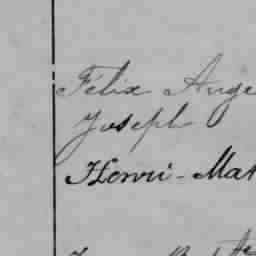 Félix Ange
Joseph
Henri-Mat